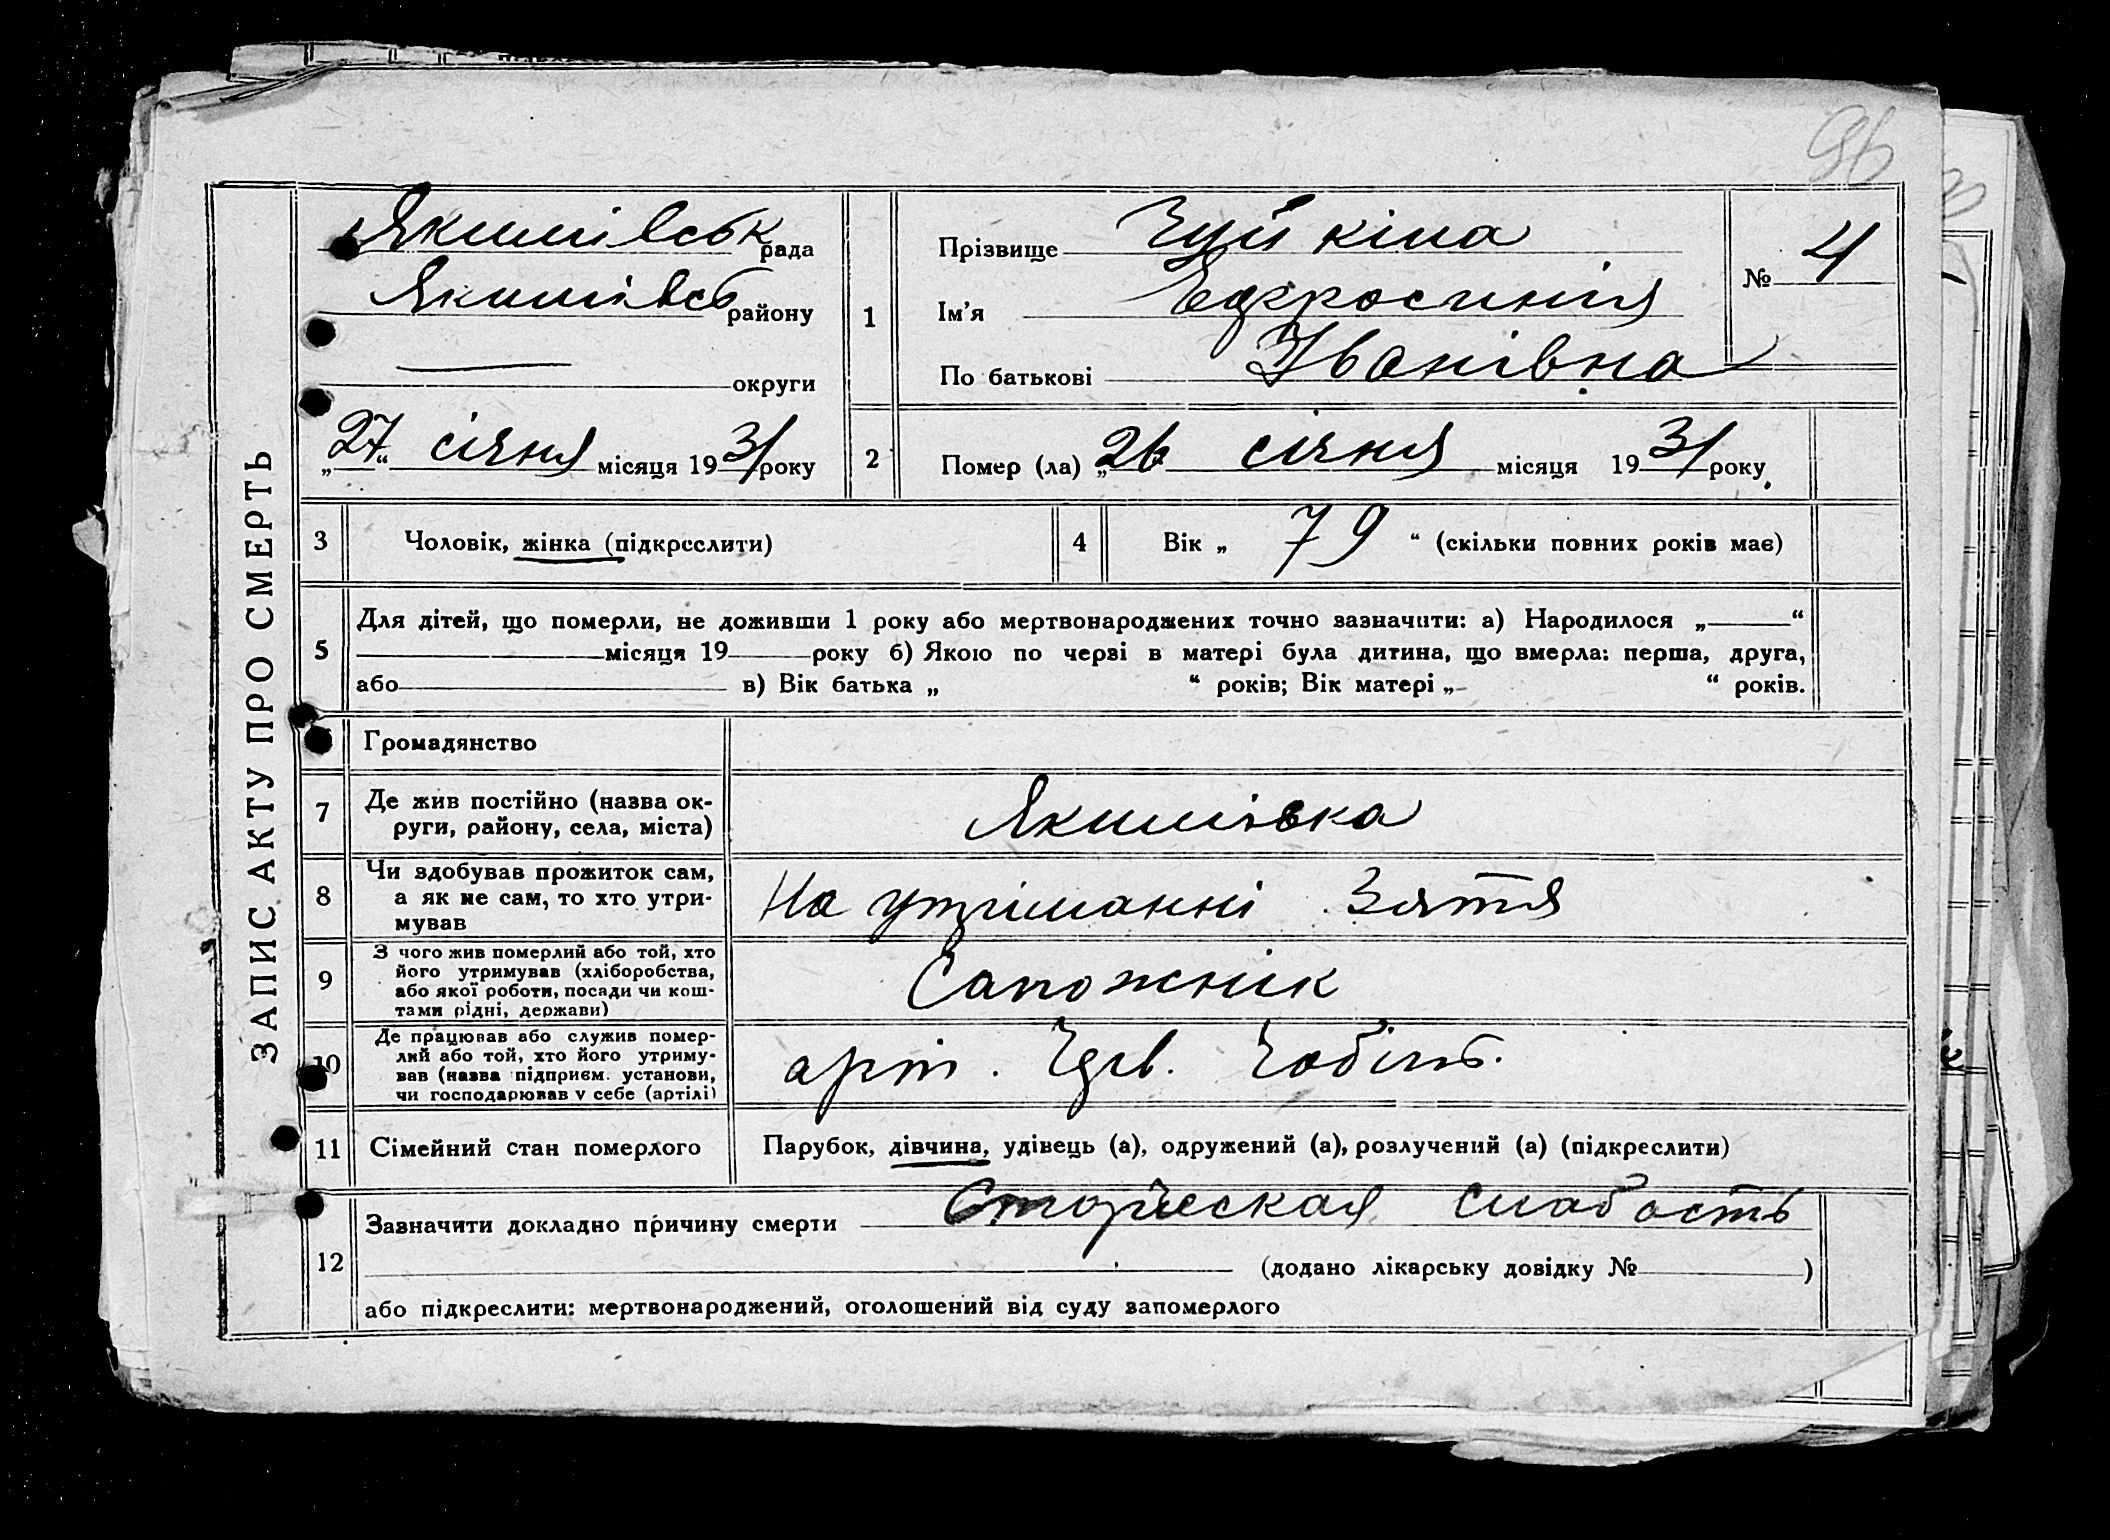 96
ЗАПИС АКТУ ПРО СМЕРТЬ
Якимівськ рада
Якимівсь району
округи
„27“ січня місяця 1931 року
1
Прізвище Чуйкіна
Ім'я Ефросинія
По батькові Іванівна
№ 4
2
Помер (ла) „26 січня місяця 1931 року
3
Чоловік, жінка (підкреслити)
4
Вік „ 79 “ (скільки повних років має)
5
Для дітей, що померли, не доживши 1 року або мертвонароджених точно зазначити: а) Народилося „ “
місяця 19 року б) Якою по черзі в матері була дитина, що вмерла: перша, друга,
або в) Вік батька „ “ років; Вік матері „ “ років.
Громадянство
7
Де жив постійно (назва ок-
руги, району, села, міста)
Якимівка
8
Чи здобував прожиток сам,
а як не сам, то хто утри-
мував
На утріманні Зятя
9
З чого жив померлий або той, хто
його утримував (хліборобства,
або якої роботи, посади чи кош-
тами рідні, держави)
Сапожнік
10
Де працював або служив помер-
лий або той, хто його утриму-
вав (назва підприєм. установи,
чи господарював у себе (артілі)
арт.
11
Сімейний стан померлого
Парубок, дівчина, удівець (а), одружений (а), розлучений (а) (підкреслити)
12
Зазначити докладно причину смерти Старческая слабость
(додано лікарську довідку № )
або підкреслити: мертвонароджений, оголошений від суду запомерлого